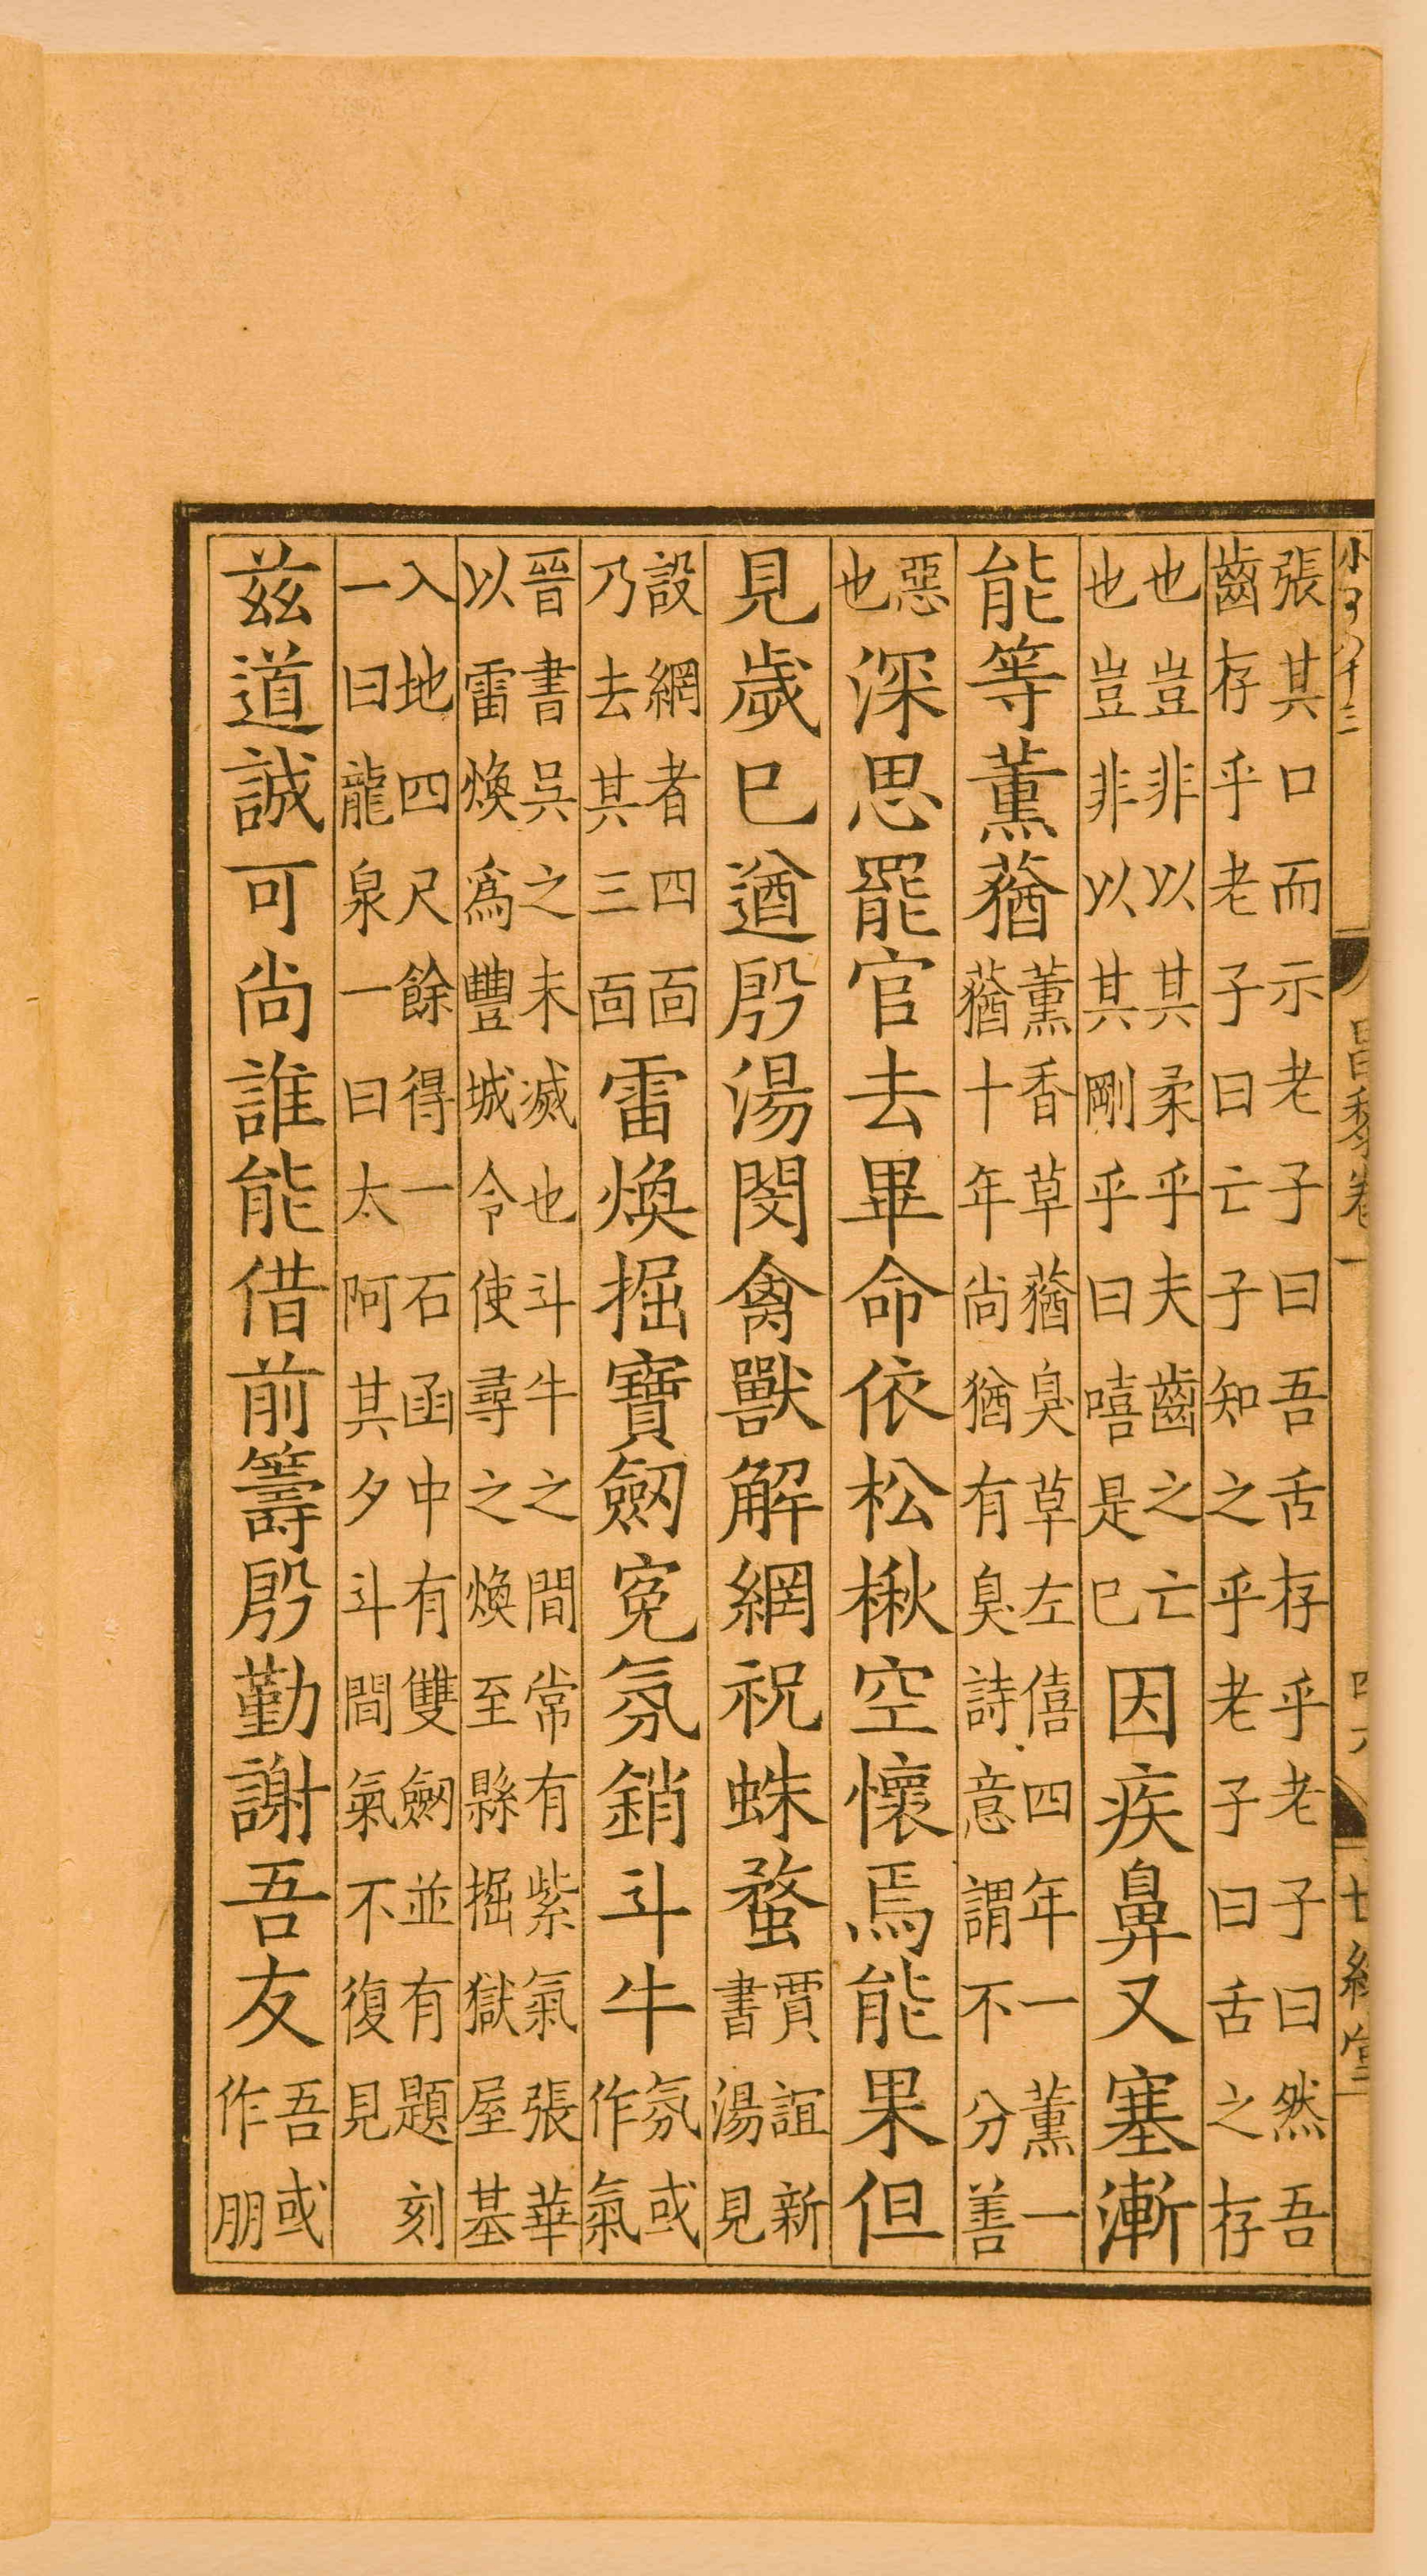 昌黎卷一
世綵堂
張其口而示老子曰吾舌存乎老子曰然吾
齒存乎老子曰亡子知之乎老子曰舌之存
也豈非以其柔乎夫齒之亡
也豈非以其剛乎曰嘻是巳
因疾鼻又塞漸
能等薰蕕
薰香草蕕臭草左僖四年一薰一
蕕十年尚猶有臭詩意謂不分善
惡
也
深思罷官去畢命依松楸空懷焉能果但
見歲巳遒殷湯閔禽獸解網祝蛛蝥
賈誼新
書湯見
設網者四面
乃去其三面
雷煥掘寶劔冤氛銷斗牛
氛或
作氣
晉書吳之未滅也斗牛之間常有紫氣張華
以雷煥爲豐城令使尋之煥至縣掘獄屋基
入地四尺餘得一石函中有雙劔並有題刻
一曰龍泉一曰太阿其夕斗間氣不復見
茲道誠可尚誰能借前籌殷勤謝吾友
吾或
作朋